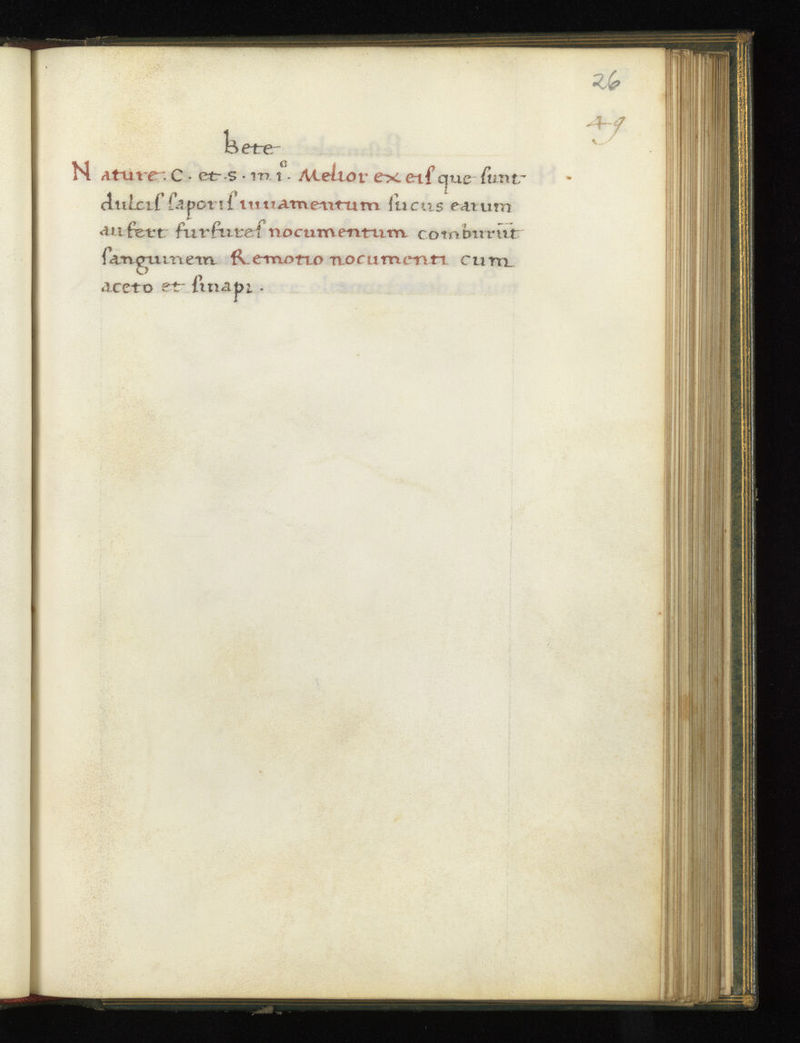 26
49
Bete
Nature: C. et .S. in .i.º Melior ex eis que sunt
dulcis saporis iuuamentum sucus earum
aufert furfures nocumentum comburūt
sanguinem Remotio nocumenti cum
aceto et sinapi .